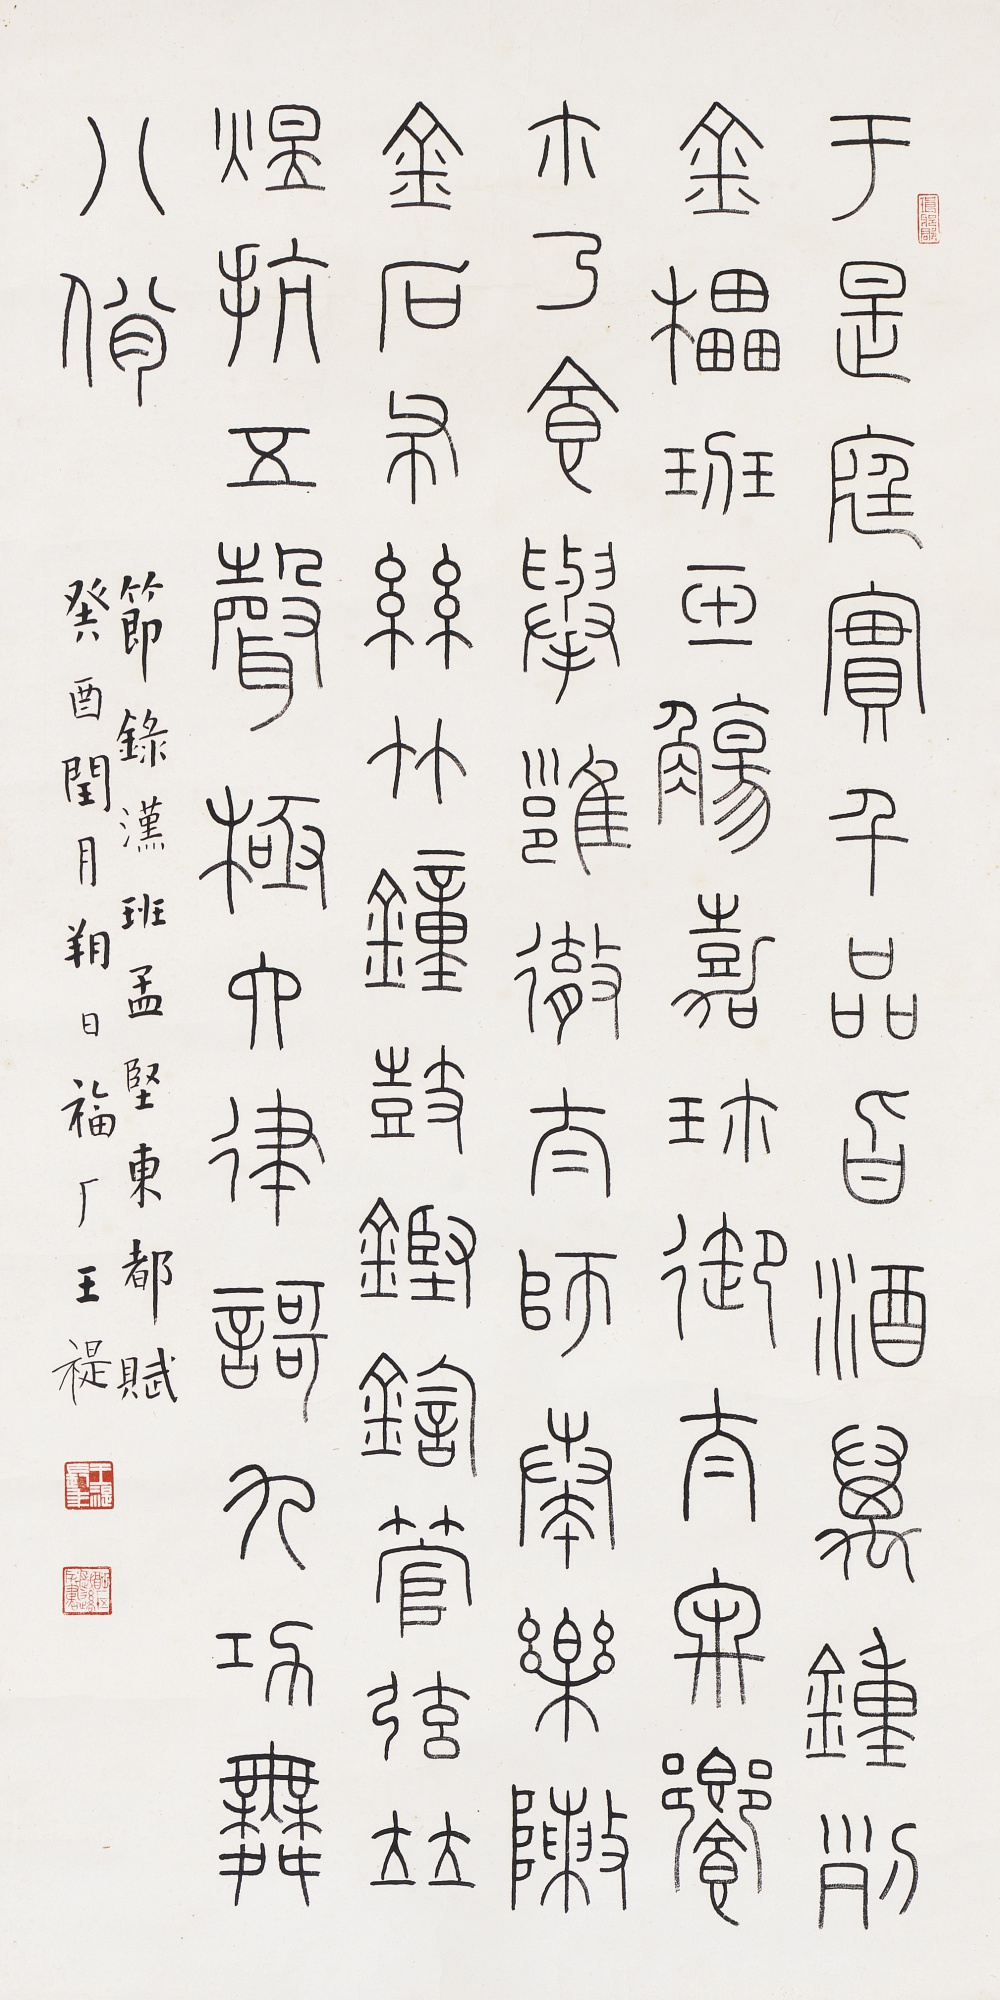 于是庭實千品旨酒萬鍾列
金櫑班玉觴嘉珍御太牢饗
尒乃食舉雝徹太師奏樂陳
金石布絲竹鐘鼓鏗鍧管弦竝
煜抗五聲極六律謌九功舞
八佾
節錄漢班孟堅東都賦
癸酉閏月朔日福厂王禔